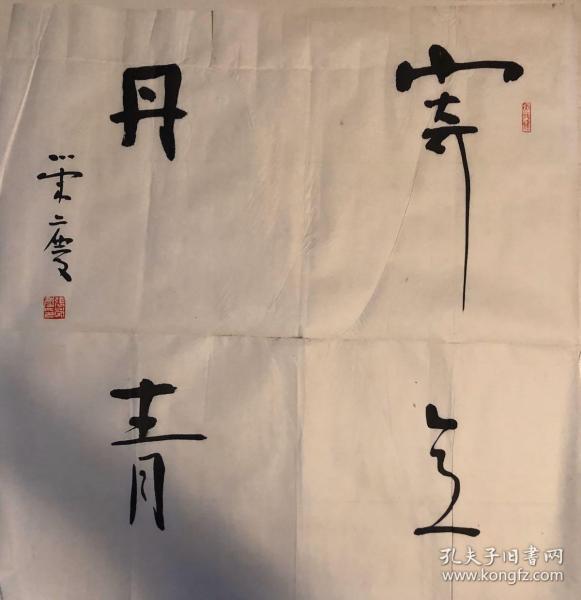 寄意
丹青
荣庆
孔夫子旧书网
www.kongfz.com